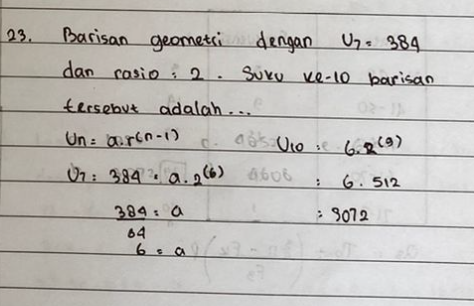 23. Barisan geometri dengan U7 = 384
dan rasio = 2. Suku ke-10 barisan
tersebut adalah...
Un = a.r(n-1)
U7 = 384 = a.2(6)
384 = a
64
6 = a
U10 = 6.2(9)
= 6.512
= 3072